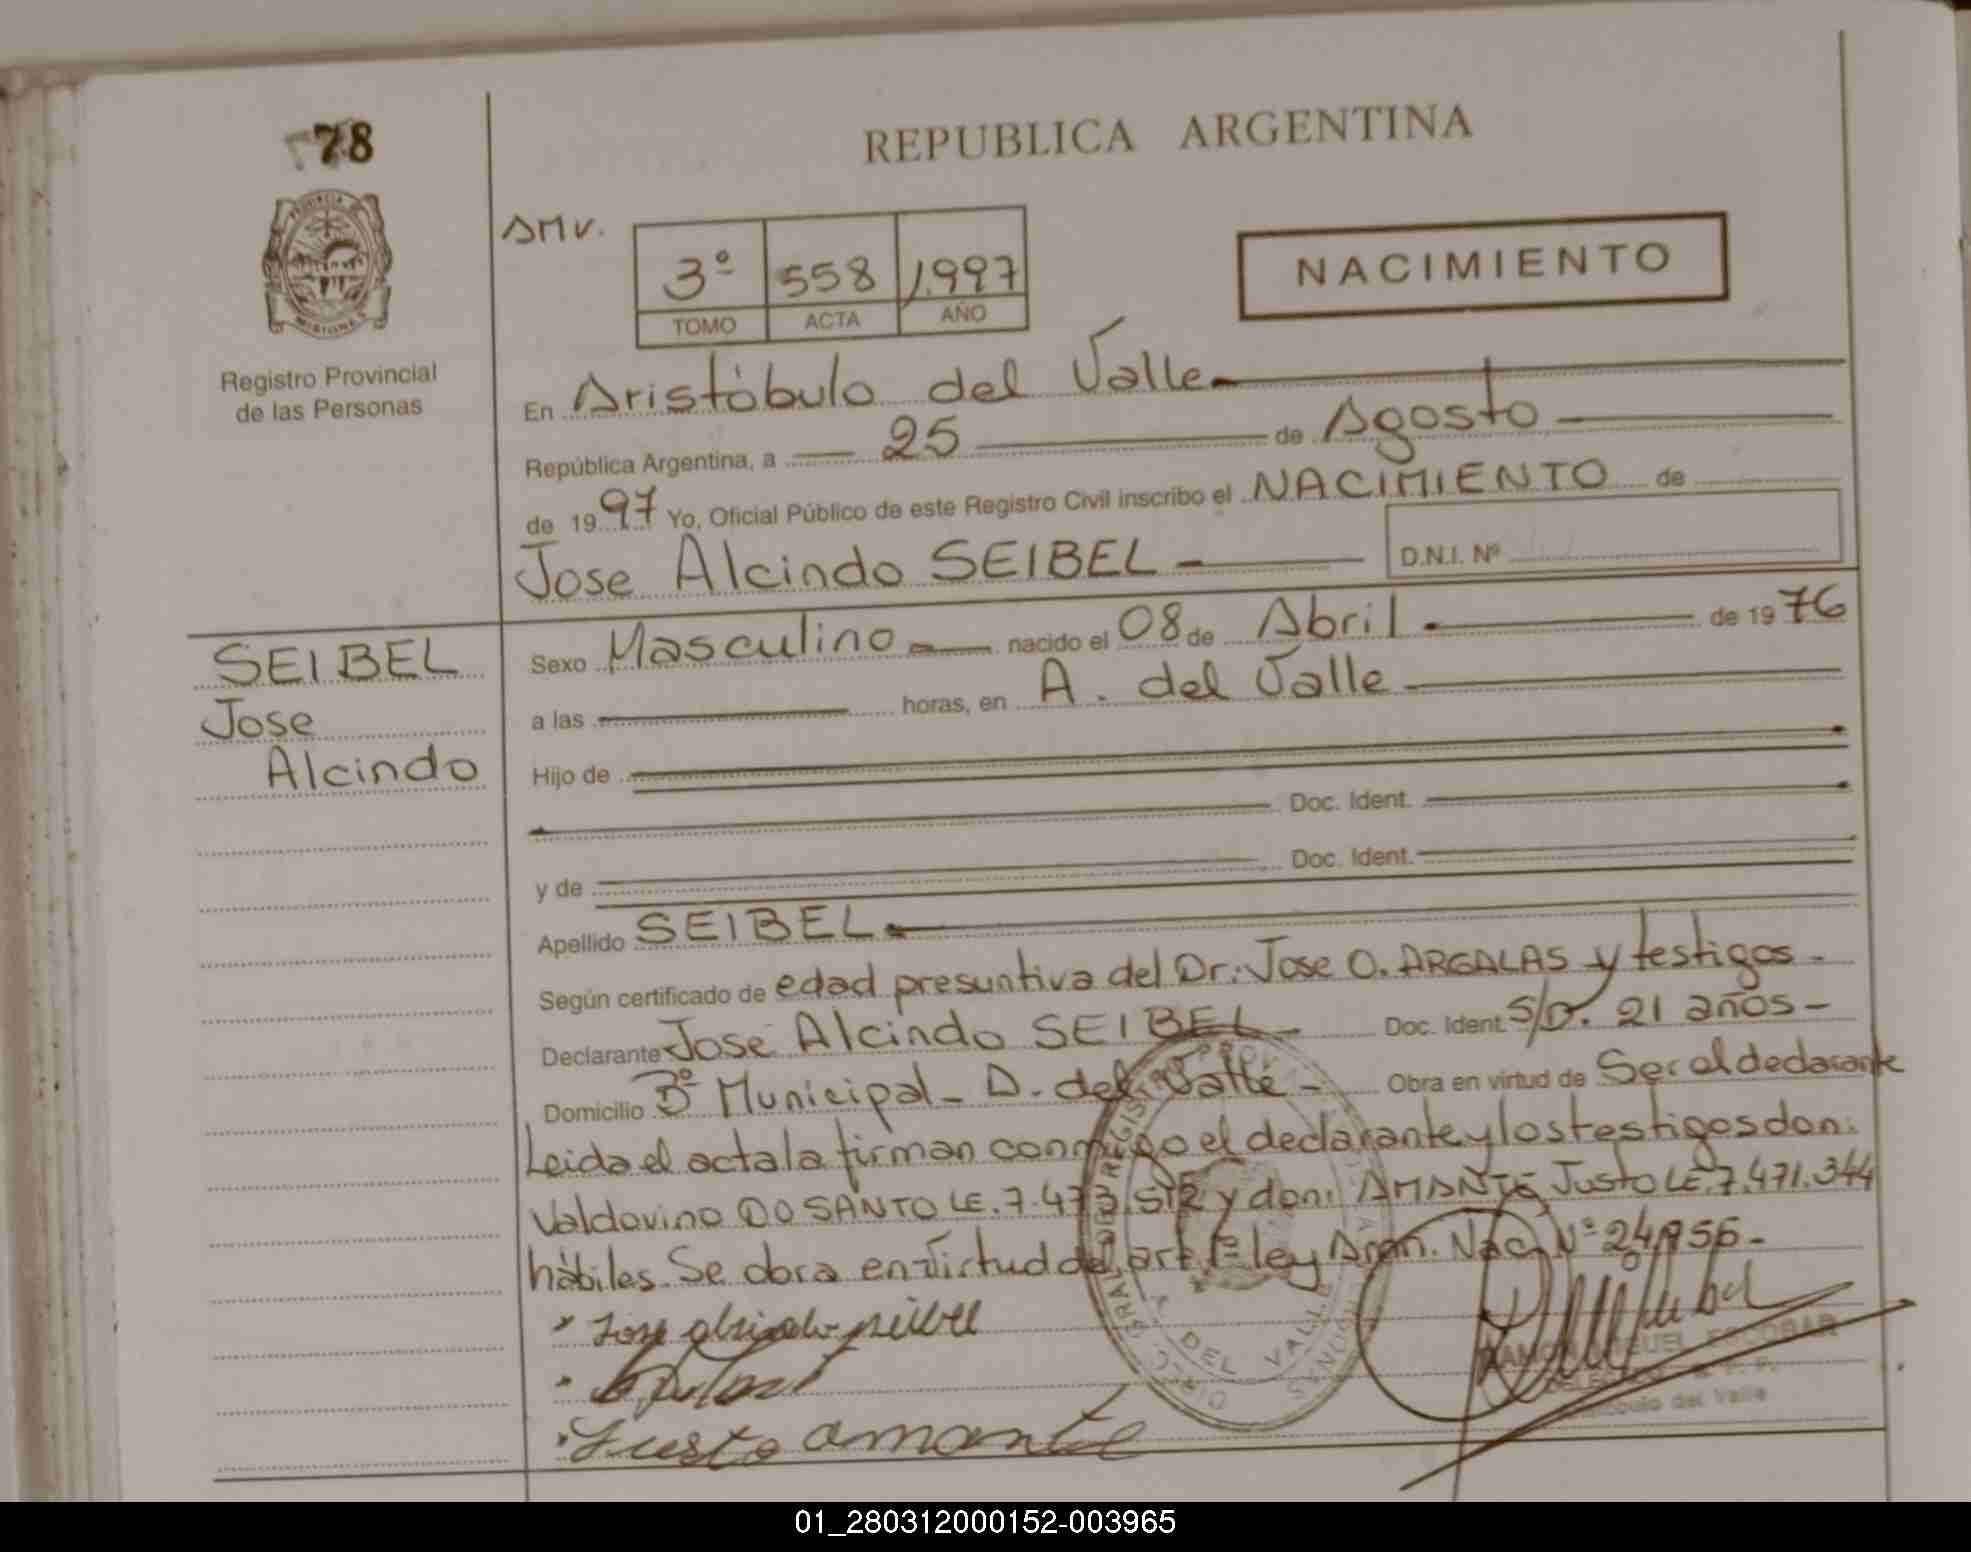 78
REPUBLICA ARGENTINA
PROVINCIA DE
MISIONES
Registro Provincial
de las Personas
AMV.
3º 558 1.997
TOMO ACTA AÑO
NACIMIENTO
En Aristóbulo del Valle
República Argentina, a 25 de Agosto
de 1997 Yo, Oficial Público de este Registro Civil inscribo el NACIMIENTO de
Jose Alcindo SEIBEL D.N.I. Nº
SEIBEL
Jose
Alcindo
Sexo Masculino nacido el 08 de Abril de 1976
a las horas, en A. del Valle
Hijo de
Doc. Ident.
y de Doc. Ident.
Apellido SEIBEL
Según certificado de edad presuntiva del Dr: Jose O. ARGALAS y testigos.
Declarante José Alcindo SEIBEL Doc. Ident. S/D. 21 años
Domicilio Bº Municipal - A. del Valle - Obra en virtud de Ser el declarante
Leida el acta la firman conmigo el declarante y los testigos don:
Valdovino DO SANTO LE. 7.473.512 y don: AMANTE Justo LE. 7.471.344
hábiles. Se obra en virtud del art. 1º ley Nac. Nº 24.
Jose alcindo seibel
Justo amante
RAMON MIGUEL ESCOBAR
Aristóbulo del Valle
01_280312000152-003965